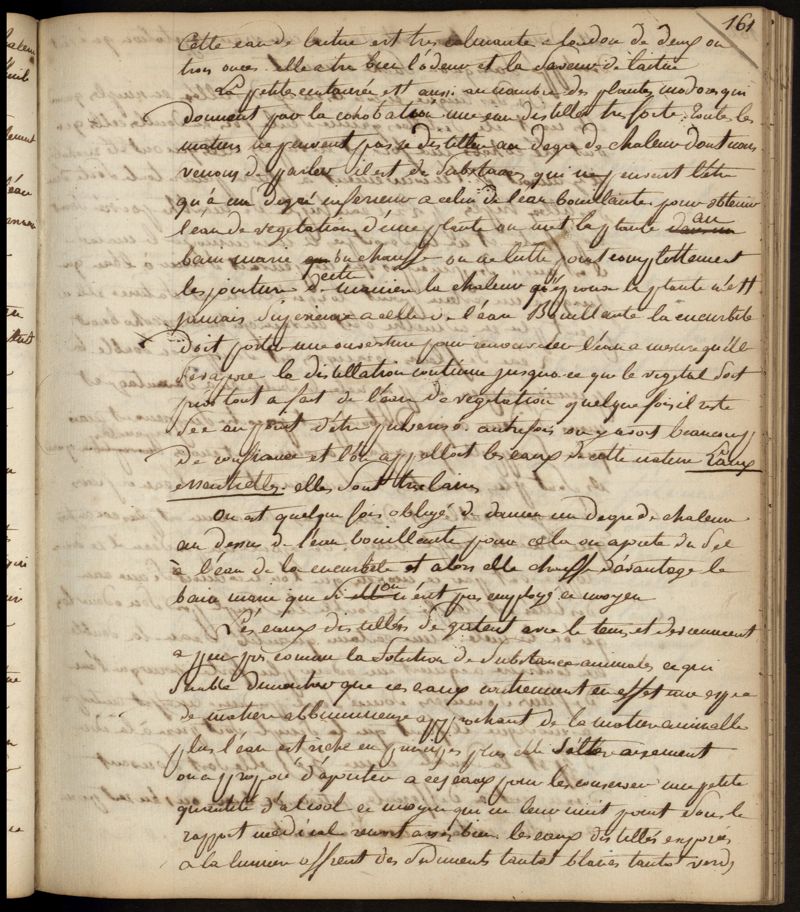 161
Cette eau de laitue est tres calmante a la dose de deux ou
trois onces. elle a tre bien l'odeur et la saveur de laitue
La petite centaurée est aussi au nombre des plantes inodores qui
donnent par la cohobation une eau distillée tres forte. toute les
matieres ne peuvent pas se distiller au degre de chaleur dont nous
venons de parler il est de substances qui ne peuvent l'etre
qu'a un degré inferieur a celui de l'eau bouillante. pour obtenir
l'eau de vegetation d'une plante on met la plante dans un au
bain marie qu on chauffe on ne lutte point complettement
les jointures de cette maniere la chaleur qu'eprouve la plante n'est
jamais superieure a celle de l'eau Bouillante la cucurbite
doit porter une ouverture pour renouveler l'eau a mesure qu'elle
s'evapore la distillation continue jusqu'a ce que le vegetal soit
privé tout a fait de l'eau de vegetation quelque fois il reste
sec au point d'etre pulverisé. autrefois on y avoit beaucoup
de confiance et l'on appelloit les eaux de cette nature Eaux
essentielles. elles sont tres claires
On est quelque fois obligé de donner un degre de chaleur
au dessus de l'eau bouillante pour cela on ajoute du sel
à l'eau de la cucurbite et alors elle chauffe davantage le
bain marie que si on n'eut pas employé ce moyen
Les eaux distillées se gatent avec le tems et deviennent
a peu près comme la solution de substances animales ce qui
semble demontrer que ces eaux contiennent en effet une espece
de matiere albumineuse approchant de la matiere animalle
plus l'eau est riche en principes plus elle s'altere aisement
on a proposé d'ajouter a ces eaux pour les conserver une petite
quantité d'alcool ce moyen qui ne leur nuit point sous le
rapport medical reussit assés bien. les eaux distillés exposées
a la lumiere offrent des sediments tantot blancs tantot verds